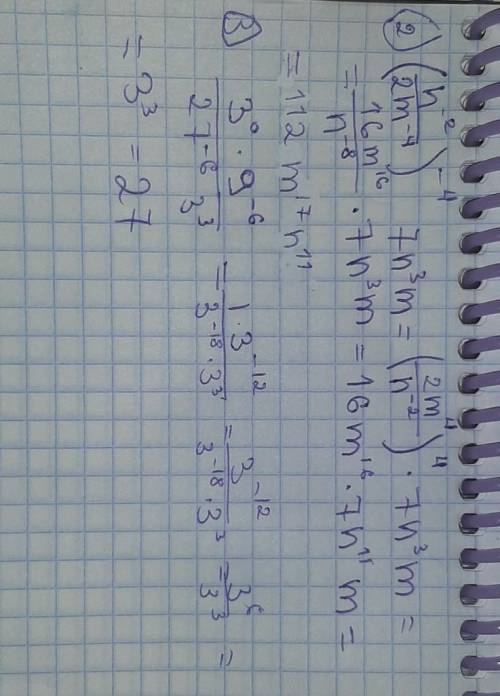 2) (n⁻²/2m⁻⁴)⁻⁴ 7n³m = (2m⁻⁴/n⁻²)⁴ · 7n³m =
= 16m¹⁶/n⁻⁸ · 7n³m = 16m¹⁶ · 7n¹¹m =
= 112 m¹⁷n¹¹
3) 3⁰ · 9⁻⁶/27⁻⁶ 3³ = 1 · 3⁻¹²/3⁻¹⁸ · 3³ = 3⁻¹²/3⁻¹⁸ · 3³ = 3⁶/3³ =
= 3³ = 27